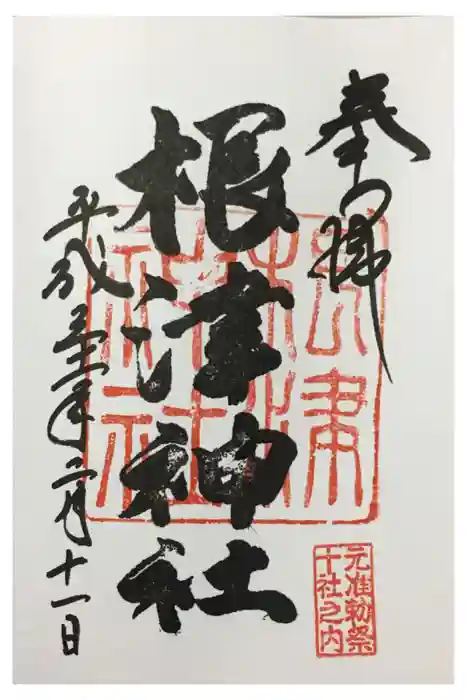 奉拝
元准勅祭
十社之内
根津神社
平成三十一年二月十一日